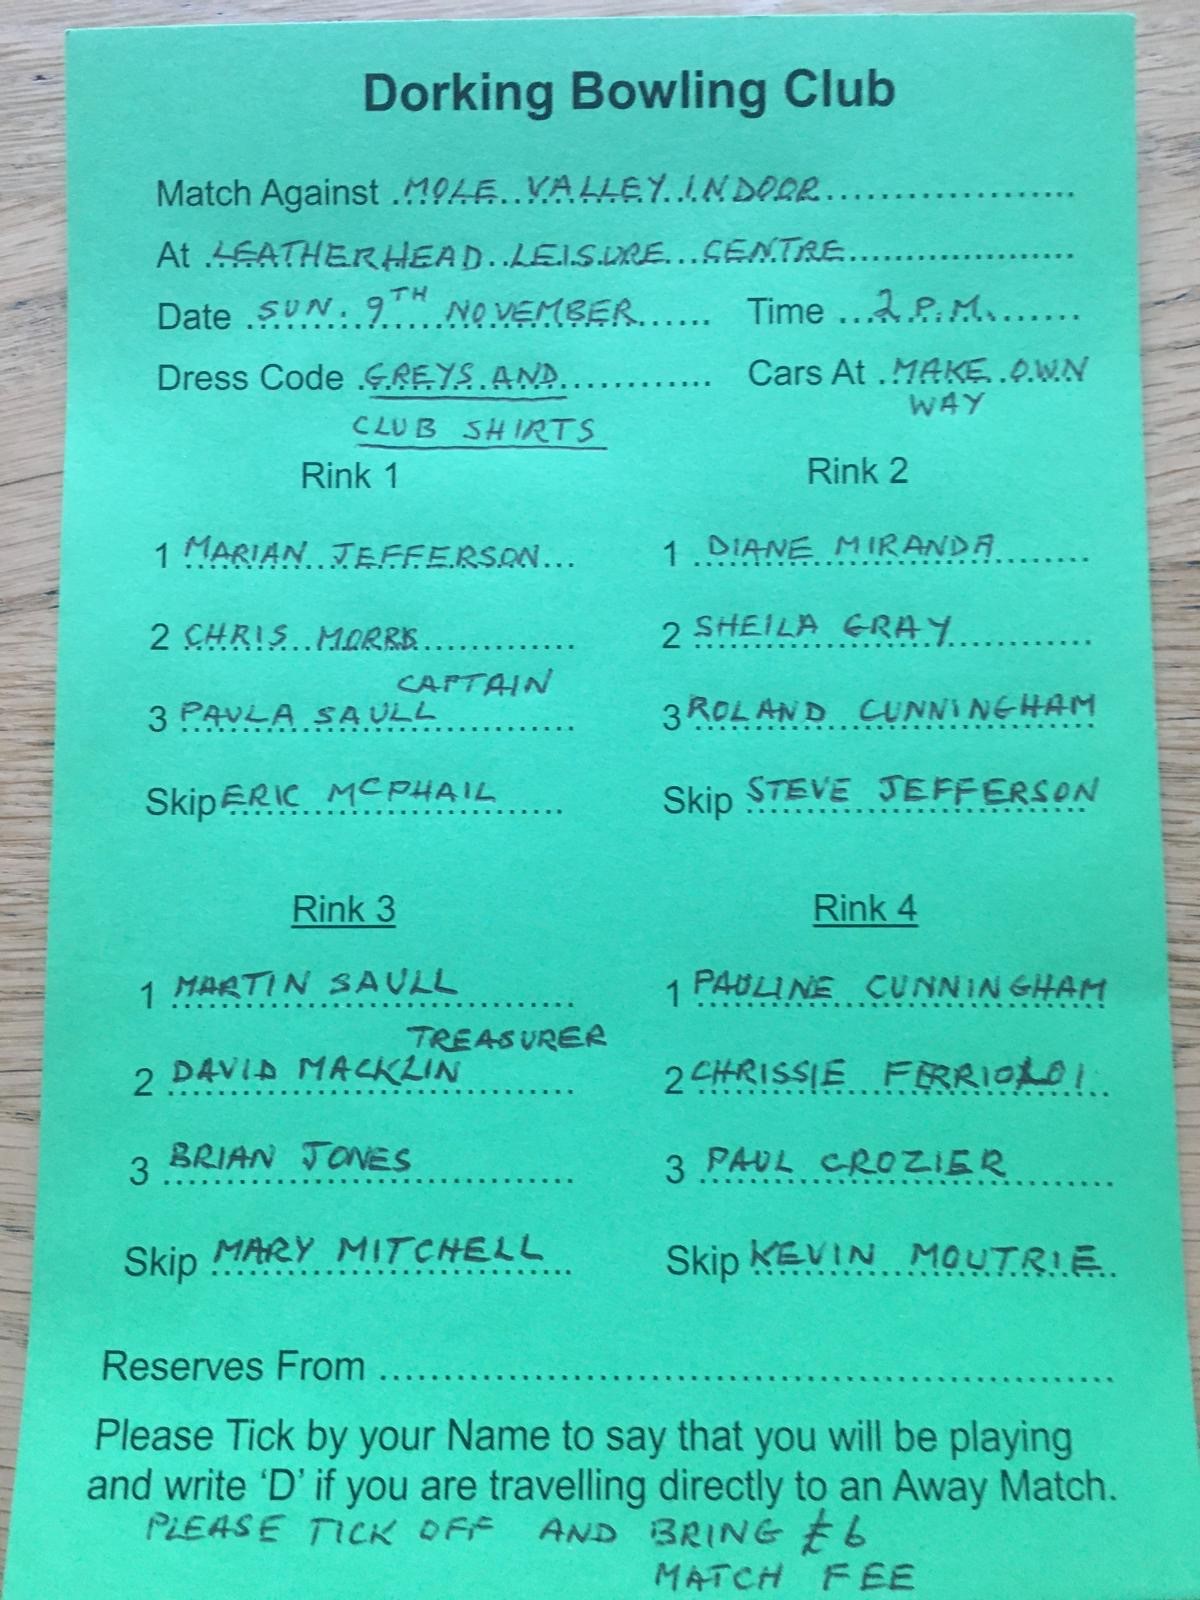 Dorking Bowling Club
Match Against MOLE VALLEY INDOOR
At LEATHERHEAD LEISURE CENTRE
Date SUN. 9TH NOVEMBER Time 2 P.M.
Dress Code GREYS AND Cars At MAKE OWN
CLUB SHIRTS WAY
Rink 1 Rink 2
1 MARIAN JEFFERSON 1 DIANE MIRANDA
2 CHRIS 2 SHEILA GRAY
CAPTAIN
3 PAULA SAULL 3 ROLAND CUNNINGHAM
Skip ERIC MCPHAIL Skip STEVE JEFFERSON
Rink 3 Rink 4
1 MARTIN SAULL 1 PAULINE CUNNINGHAM
TREASURER
2 DAVID MACKLIN 2 CHRISSIE
3 BRIAN JONES 3 PAUL CROZIER
Skip MARY MITCHELL Skip KEVIN MOUTRIE
Reserves From
Please Tick by your Name to say that you will be playing
and write ‘D’ if you are travelling directly to an Away Match.
PLEASE TICK OFF AND BRING £6
MATCH FEE